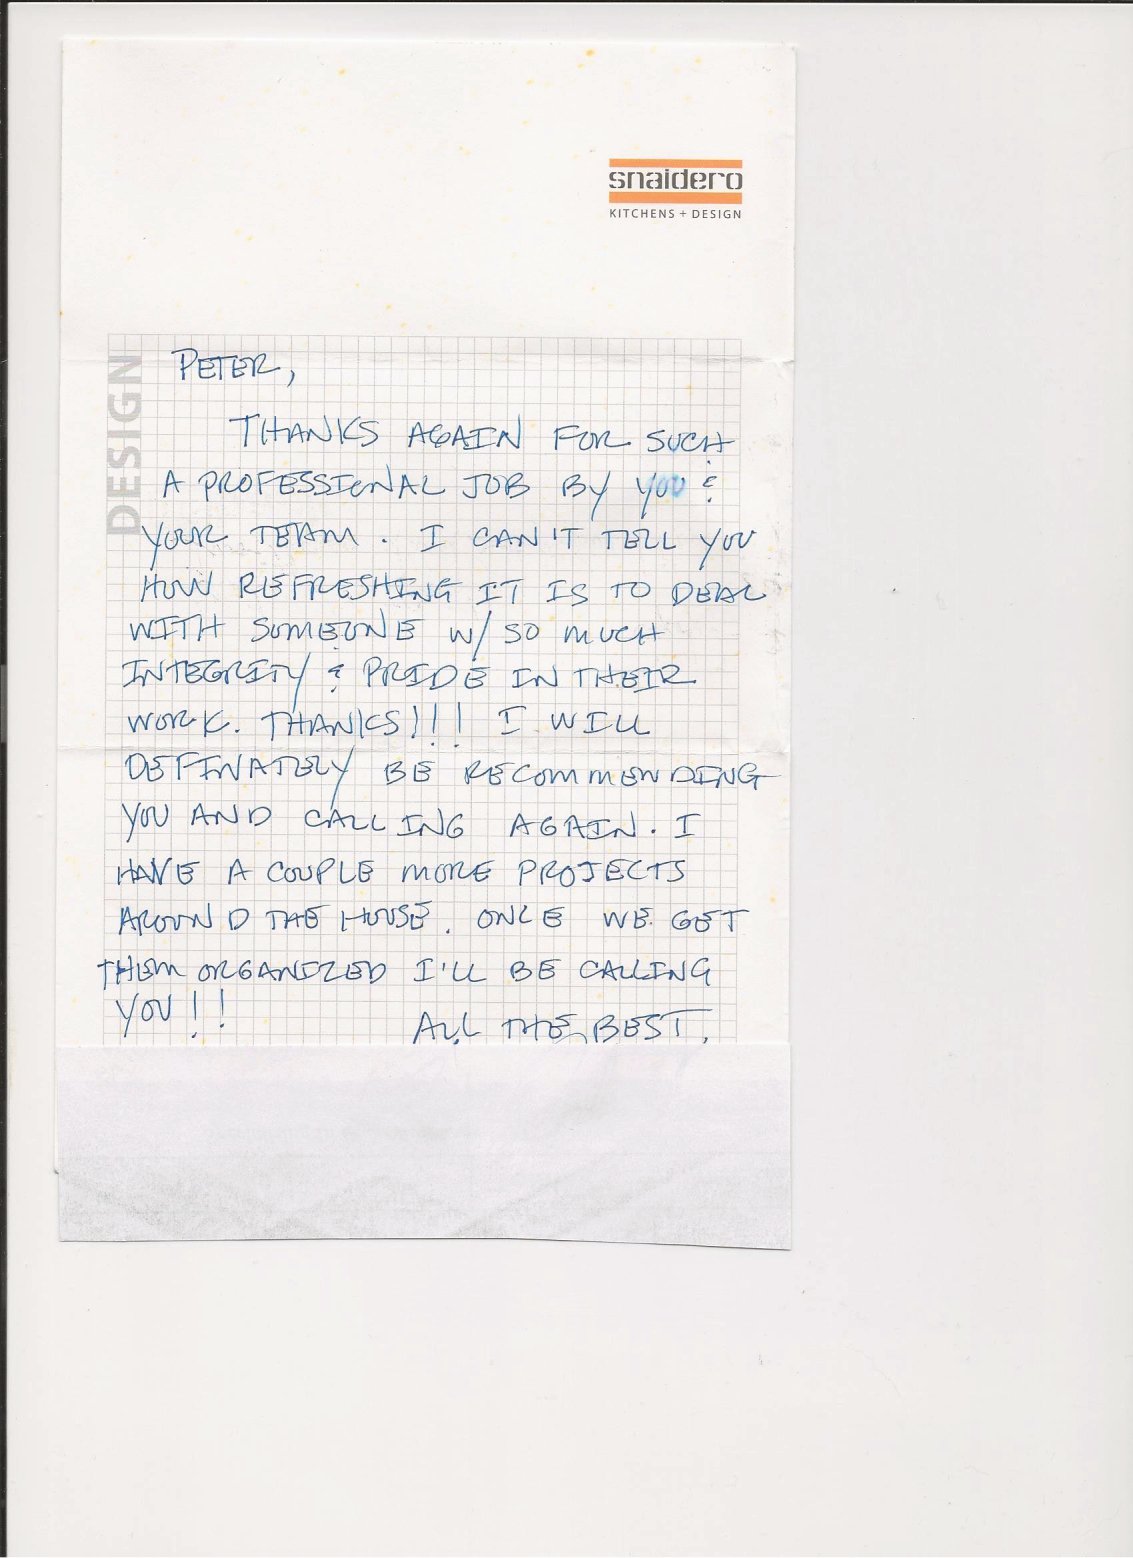 snaidero
KITCHENS + DESIGN
DESIGN
PETER,
THANKS AGAIN FOR SUCH
A PROFESSIONAL JOB BY YOU &
YOUR TEAM. I CAN'T TELL YOU
HOW REFRESHING IT IS TO DEAL
WITH SOMEONE W/ SO MUCH
INTEGRITY & PRIDE IN THEIR
WORK. THANKS!!! I WILL
DEFINATELY BE RECOMMENDING
YOU AND CALLING AGAIN. I
HAVE A COUPLE MORE PROJECTS
AROUND THE HOUSE. ONCE WE GET
THEM ORGANIZED I'LL BE CALLING
YOU!!
ALL THE BEST,